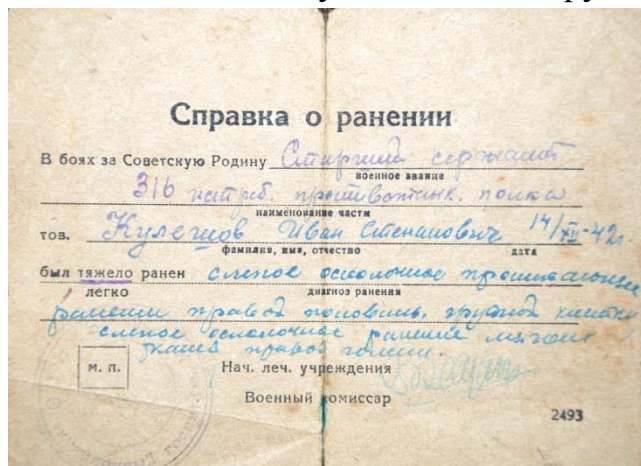 Справка о ранении
В боях за Советскую Родину Старший сержант
военное звание
316 истреб. противотанк. полка
наименование части
тов. Кулешов Иван Степанович 14/XII-42г.
фамилия, имя, отчество дата
был тяжело ранен слепое осколочное проникающее
легко диагноз ранения
ранение правой половины, грудной клетки
слепое осколочное ранение мягких
ткани правой голени.
М. П. Нач. леч. учреждения
Военный комиссар
2493